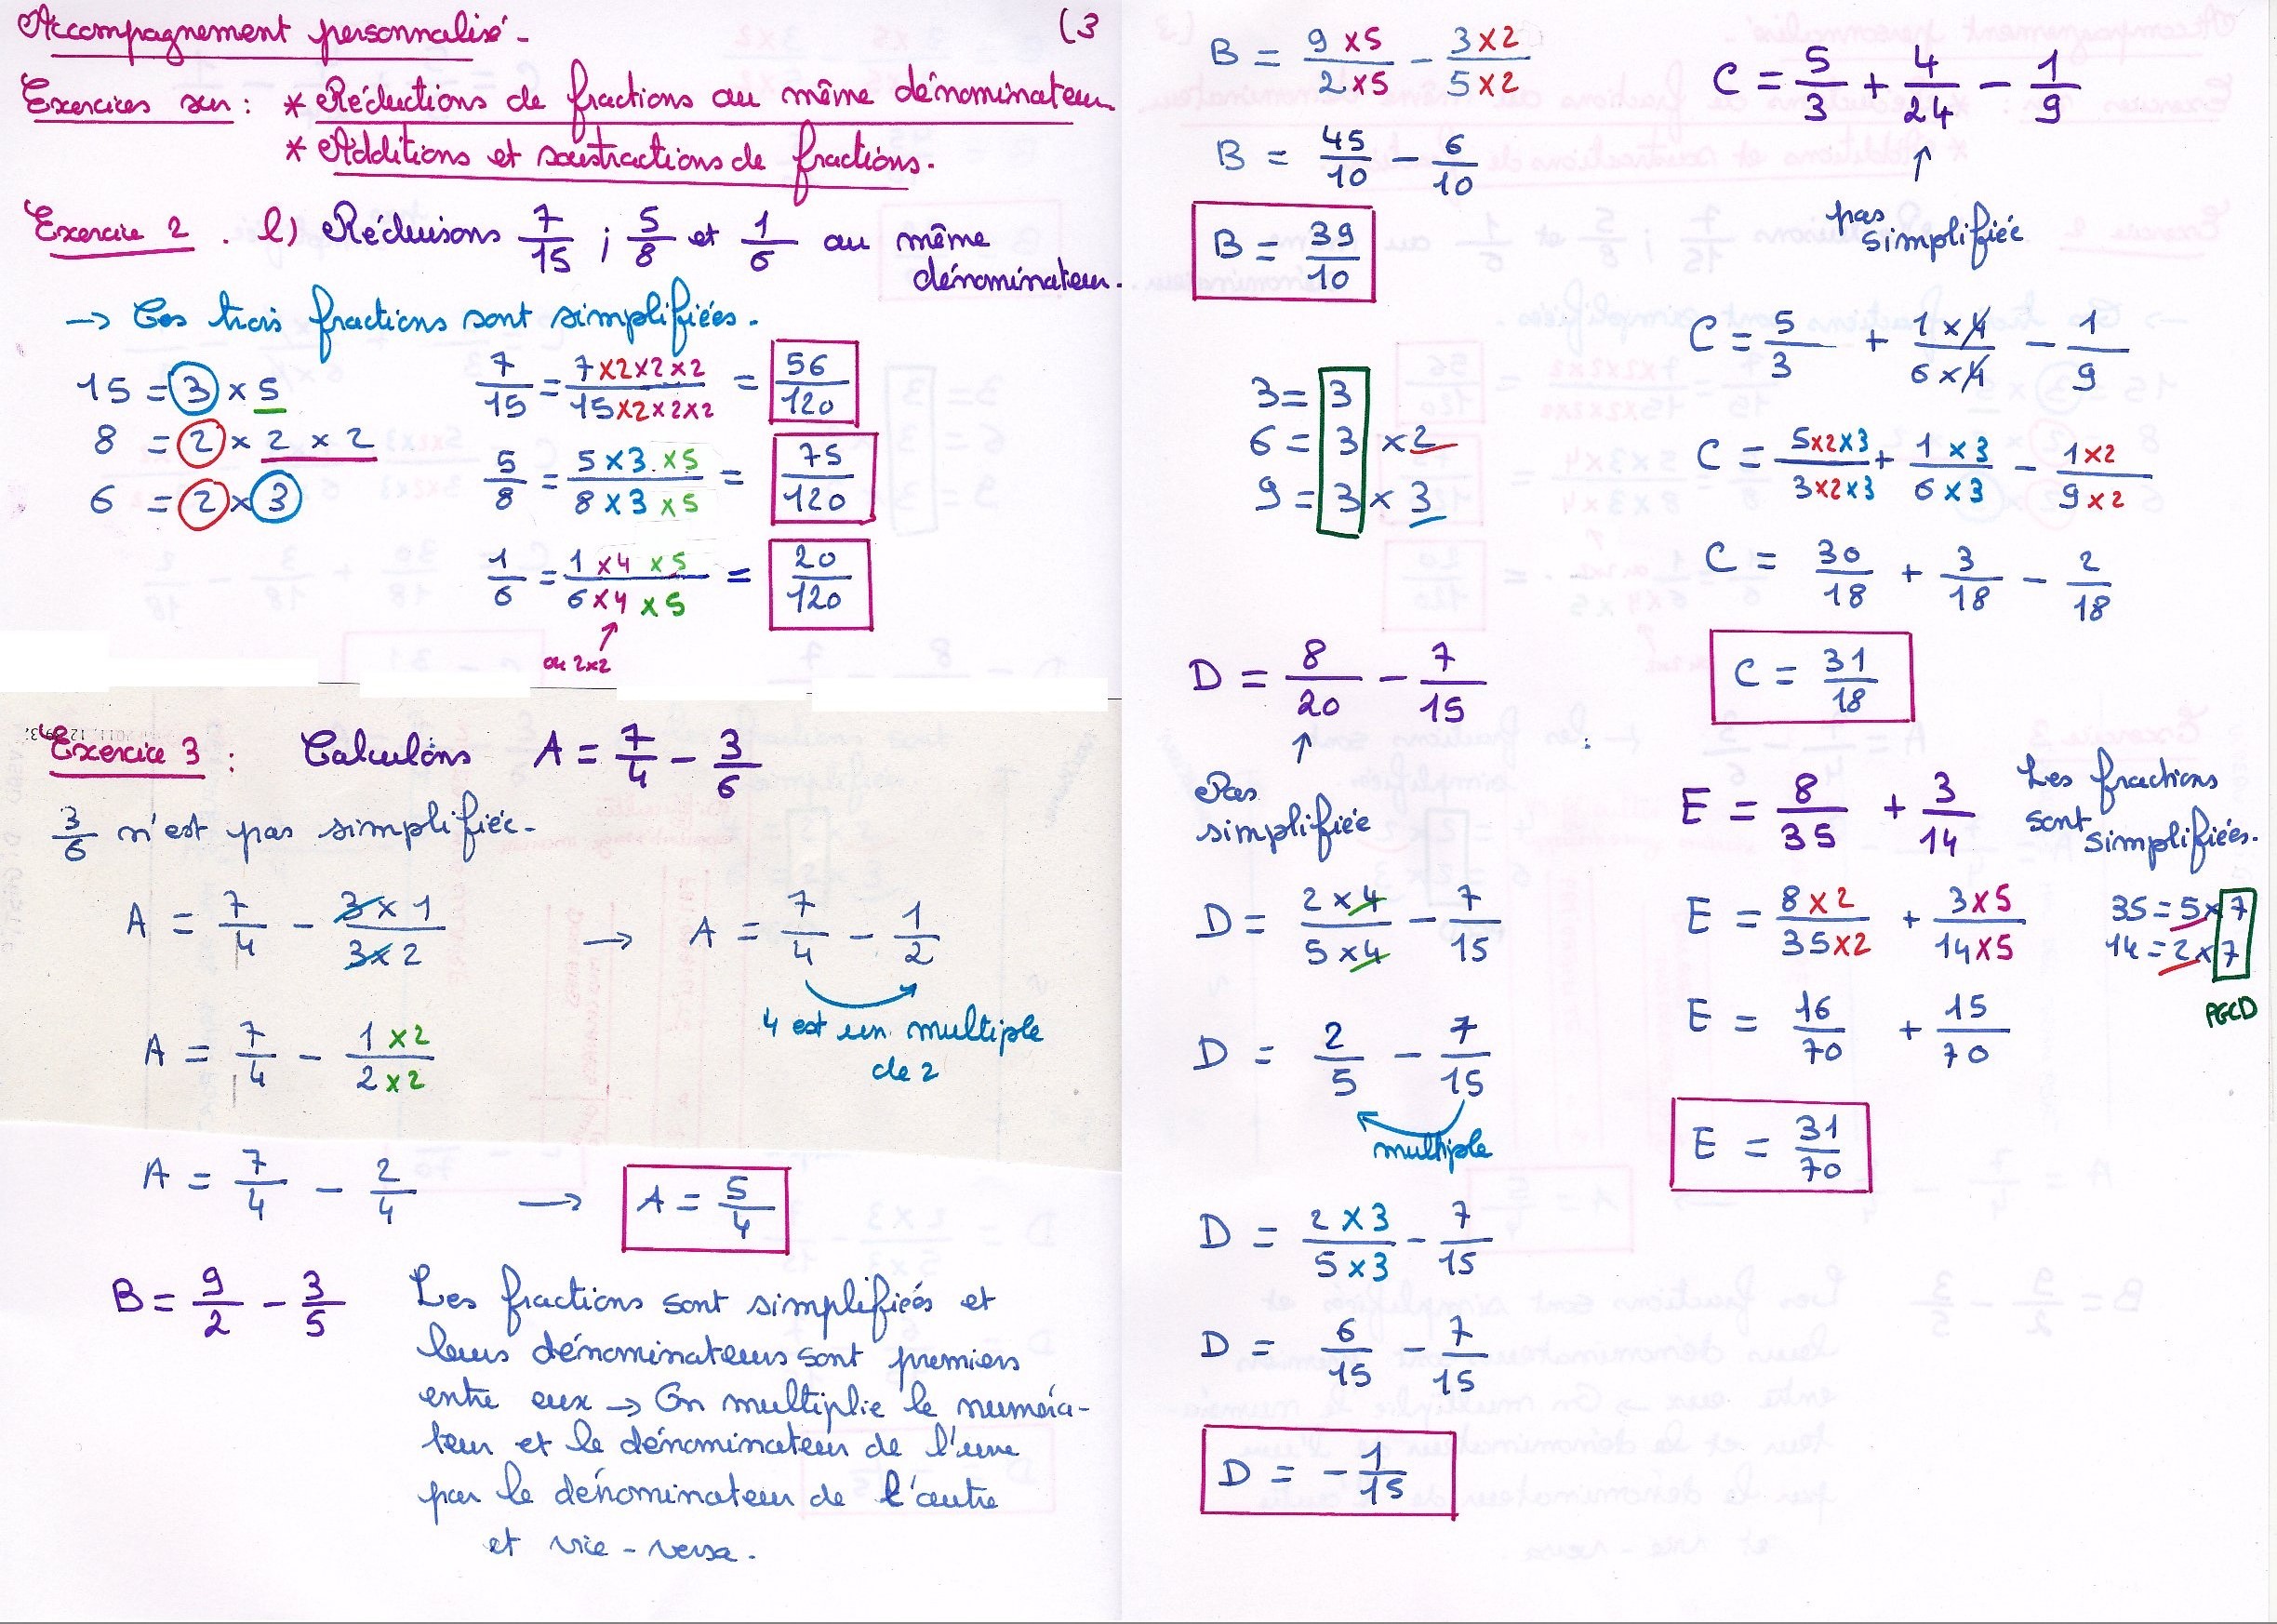 Accompagnement personnalisé - (3
Exercices sur : * Réductions de fractions au même dénominateur
* Additions et soustractions de fractions.
Exercice 2 . l) Réduisons 7/15 ; 5/8 et 1/6 au même
dénominateur.
→ Ces trois fractions sont simplifiées.
15 = 3 × 5
8 = 2 × 2 × 2
6 = 2 × 3
7/15 = (7×2×2×2)/(15×2×2×2) = 56/120
5/8 = (5×3×5)/(8×3×5) = 75/120
1/6 = (1×4×5)/(6×4×5) = 20/120
ou 2×2
Exercice 3 : Calculons A = 7/4 - 3/6
3/6 n'est pas simplifiée.
A = 7/4 - (3×1)/(3×2) → A = 7/4 - 1/2
4 est un multiple
de 2
A = 7/4 - (1×2)/(2×2)
A = 7/4 - 2/4 → A = 5/4
B = 9/2 - 3/5
Les fractions sont simplifiées et
leurs dénominateurs sont premiers
entre eux → On multiplie le numéra-
teur et le dénominateur de l'une
par le dénominateur de l'autre
et vice-versa.
B = (9×5)/(2×5) - (3×2)/(5×2)
B = 45/10 - 6/10
B = 39/10
C = 5/3 + 4/24 - 1/9
↑
pas
simplifiée
C = 5/3 + (1×4)/(6×4) - 1/9
3 = 3
6 = 3 × 2
9 = 3 × 3
C = (5×2×3)/(3×2×3) + (1×3)/(6×3) - (1×2)/(9×2)
C = 30/18 + 3/18 - 2/18
C = 31/18
D = 8/20 - 7/15
↑
Pas
simplifiée
D = (2×4)/(5×4) - 7/15
D = 2/5 - 7/15
multiple
D = (2×3)/(5×3) - 7/15
D = 6/15 - 7/15
D = - 1/15
E = 8/35 + 3/14
Les fractions
sont
simplifiées.
E = (8×2)/(35×2) + (3×5)/(14×5)
35 = 5×7
14 = 2×7
PGCD
E = 16/70 + 15/70
E = 31/70